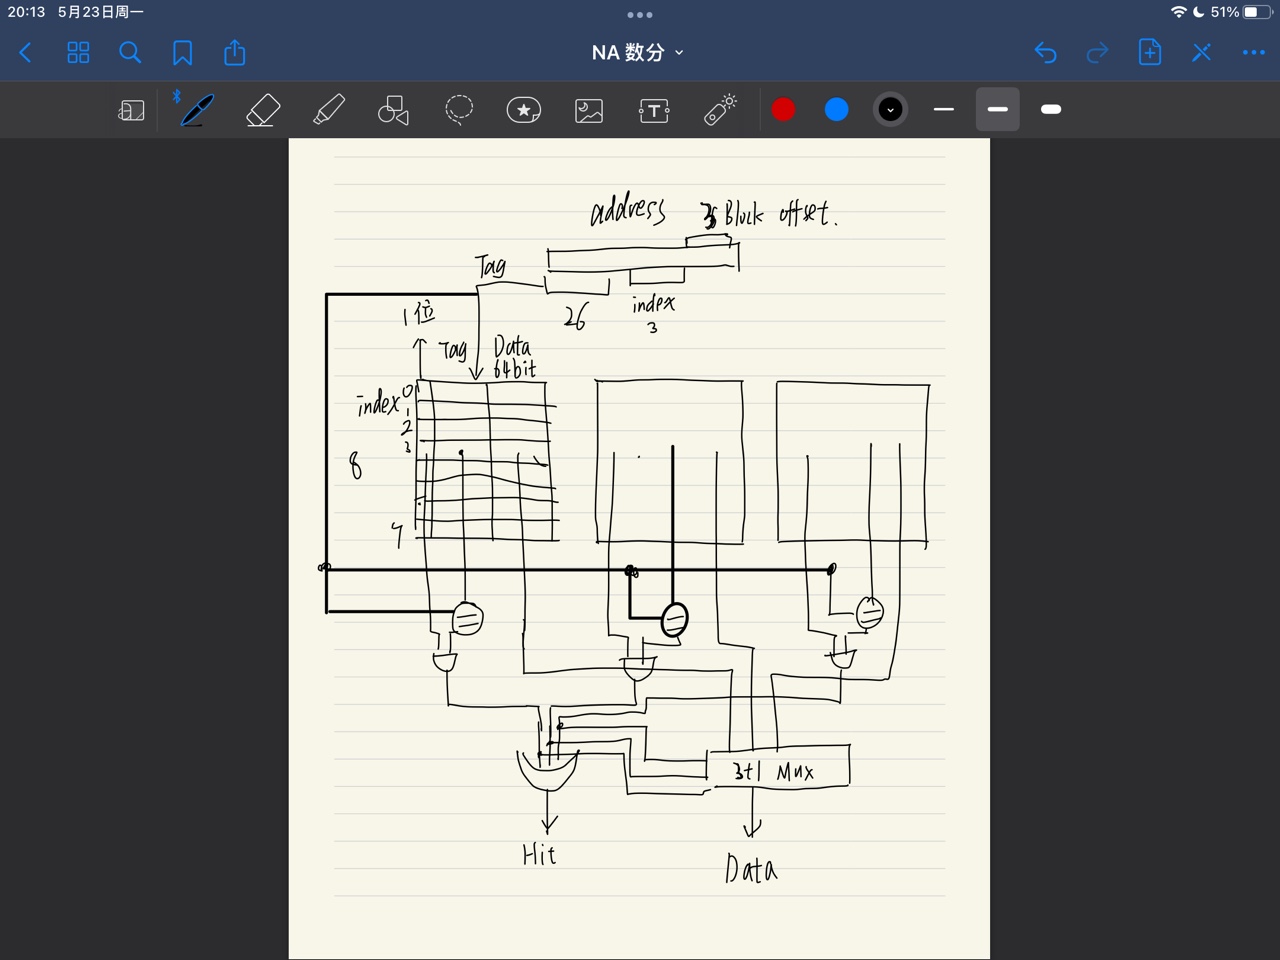 20:13 5月23日周一
51%
NA 数分
address
Block offset.
Tag
26
index
3
1位
Tag
Data
64bit
index
0
1
2
3
8
7
3t1 Mux
Hit
Data